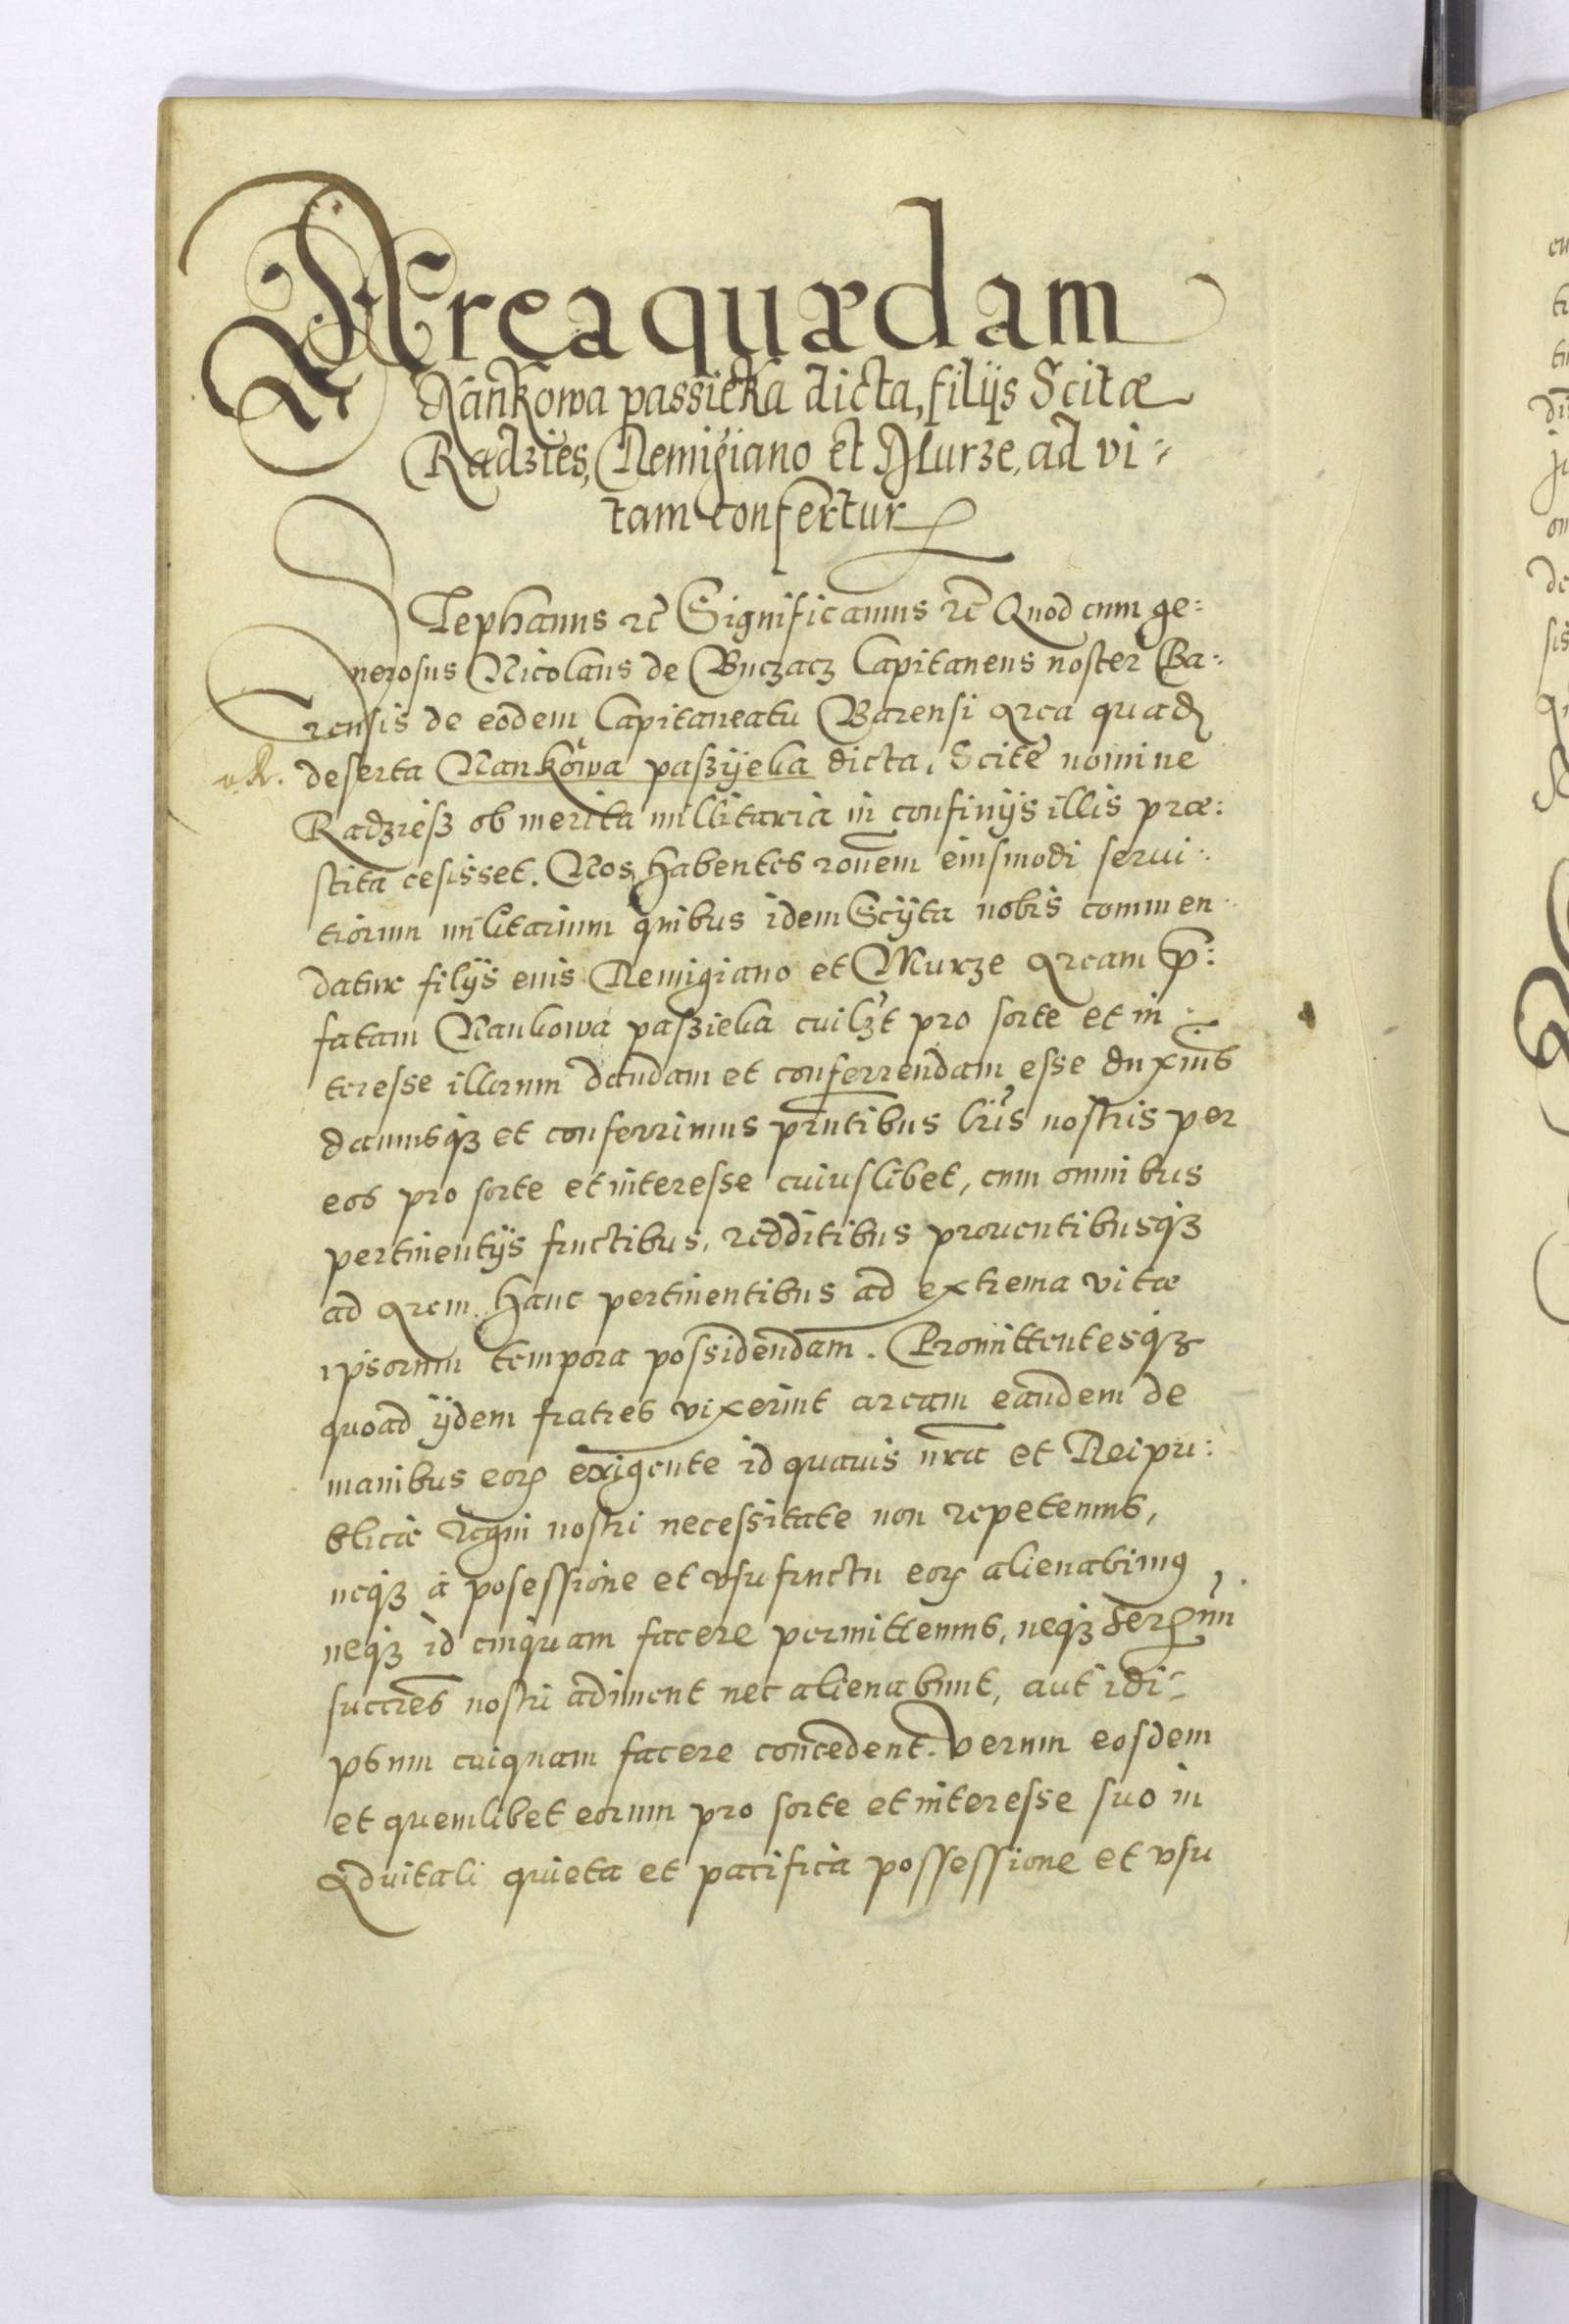 Area quædam
Nankowa passieka dicta, filijs Scitæ
Radzies, Remigiano et Murze, ad vi-
tam confertur
Stephanus rc̃ Significamus rc̃ Quod cum ge:
nerosus Nicolaus de Buczacz Capitaneus noster Ba:
rensis de eodem Capitaneatu Barensi area quadã
deserta Nankowa paszijeka dicta, Scite nomine
Radziesz ob merita millitaria in confinijs illis præ:
stita cesisset. Nos habentes rõnem eiusmodi serui:
tiorum militarium quibus idem Scijta nobis commen
datur filijs euis Remigiano et Murze aream p̃:
fatam Nankowa paszieka cuilzt pro sorte et in:
teresse illorum dandam et conferrendam esse duximus
damusqz et conferrimus pñtibus lr̃is nostris per
eos pro sorte et interesse cuiuslibet, cum omnibus
pertinentijs fructibus, redditibus prouentibusqz
ad arem hanc pertinentibus ad extrema vitæ
ipsorum tempora possidendam. Promittentesqz
quoad ijdem fratres vixerint aream eandem de
manibus eoꝝ exigente id quauis nr̃a et Reipu:
blicæ Regni nostri necessitate non repetemus,
neqz à posessione et vsufructu eoꝝ alienabimus,
neqz id cuiquam facere permittemus, neqz Serꝝmi
succr̃es nostri adiment nec alienabunt, aut idi-
psum cuiquam facere concedent. Verum eosdem
et quemlibet eorum pro sorte et interesse suo in
aduitali quieta et pacifica possessione et vsu